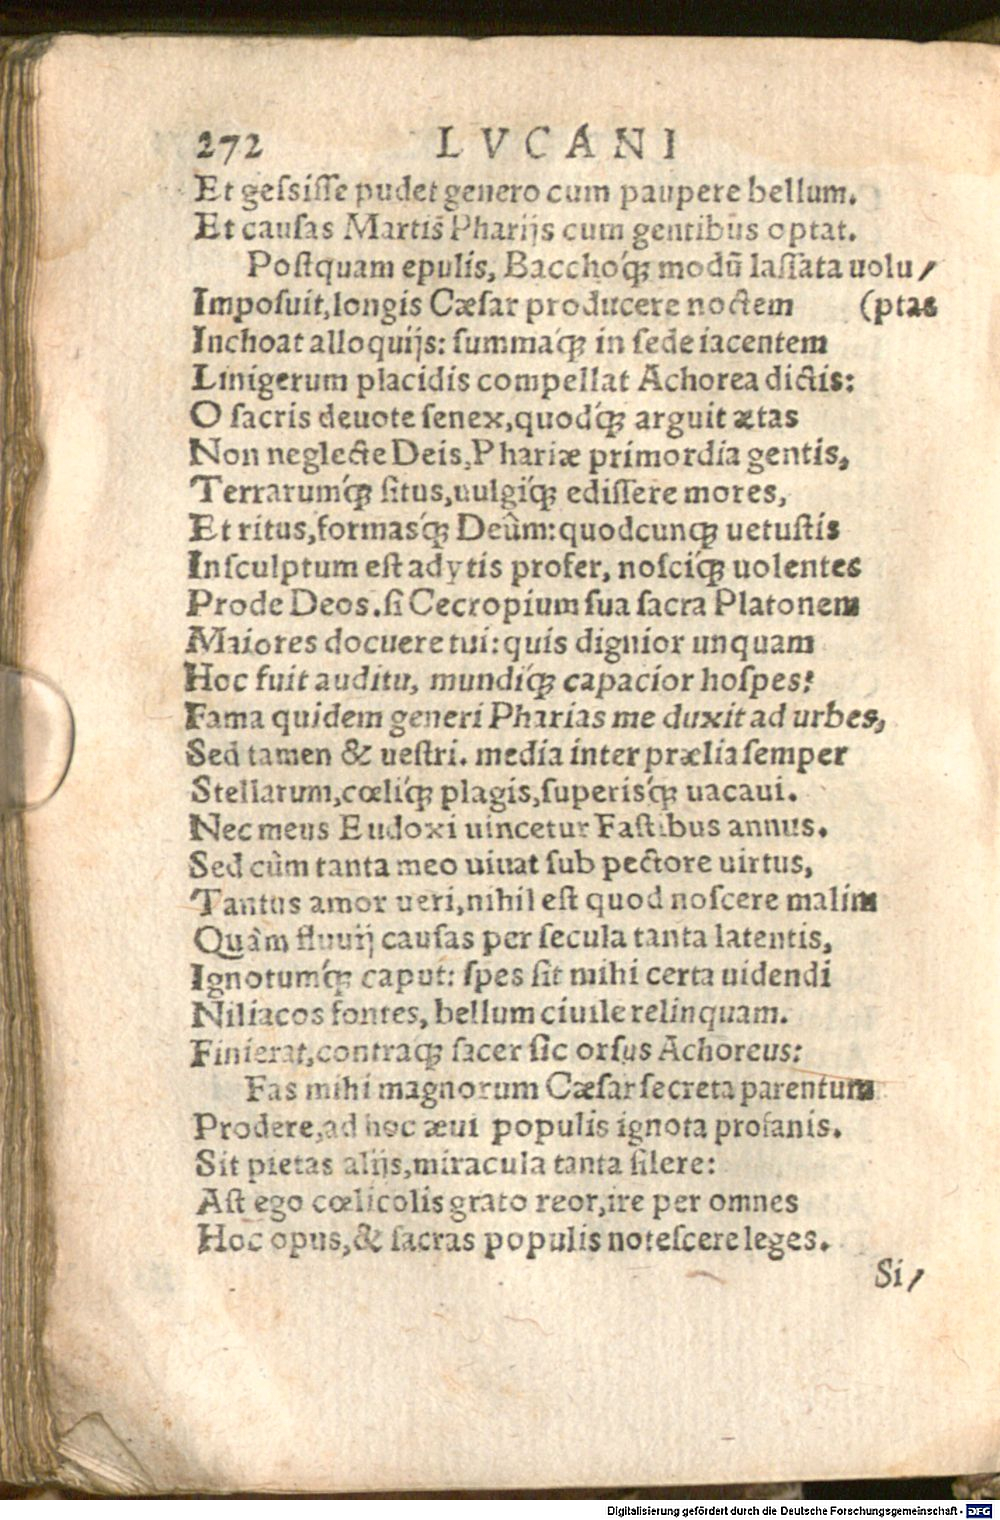 272 LVCANI
Et gessisse pudet genero cum paupere bellum.
Et causas Martis Pharijs cum gentibus optat.
Postquam epulis, Bacchoq́; modū lassata uolu/
Imposuit, longis Cæsar producere noctem (ptas
Inchoat alloquijs: summaq́; in sede iacentem
Linigerum placidis compellat Achorea dictis:
O sacris deuote senex, quodq́; arguit ætas
Non neglecte Deis, Phariæ primordia gentis,
Terrarumq́; situs, uulgiq́; edissere mores,
Et ritus, formasq́; Deûm: quodcunq; uetustis
Insculptum est adytis profer, nosciq́; uolentes
Prode Deos. si Cecropium sua sacra Platonem
Maiores docuere tui: quis dignior unquam
Hoc fuit auditu, mundiq́; capacior hospes?
Fama quidem generi Pharias me duxit ad urbes,
Sed tamen & uestri. media inter prælia semper
Stellarum, cœliq́; plagis, superisq́; uacaui.
Nec meus Eudoxi uincetur Fastibus annus.
Sed cùm tanta meo uiuat sub pectore uirtus,
Tantus amor ueri, nihil est quod noscere malim
Quàm fluuij causas per secula tanta latentis,
Ignotumq́; caput: spes sit mihi certa uidendi
Niliacos fontes, bellum ciuile relinquam.
Finierat, contraq; sacer sic orsus Achoreus:
Fas mihi magnorum Cæsar secreta parentum
Prodere, ad hoc æui populis ignota profanis.
Sit pietas alijs, miracula tanta silere:
Ast ego cœlicolis grato reor, ire per omnes
Hoc opus, & sacras populis notescere leges.
Si/
Digitalisierung gefördert durch die Deutsche Forschungsgemeinschaft - DFG